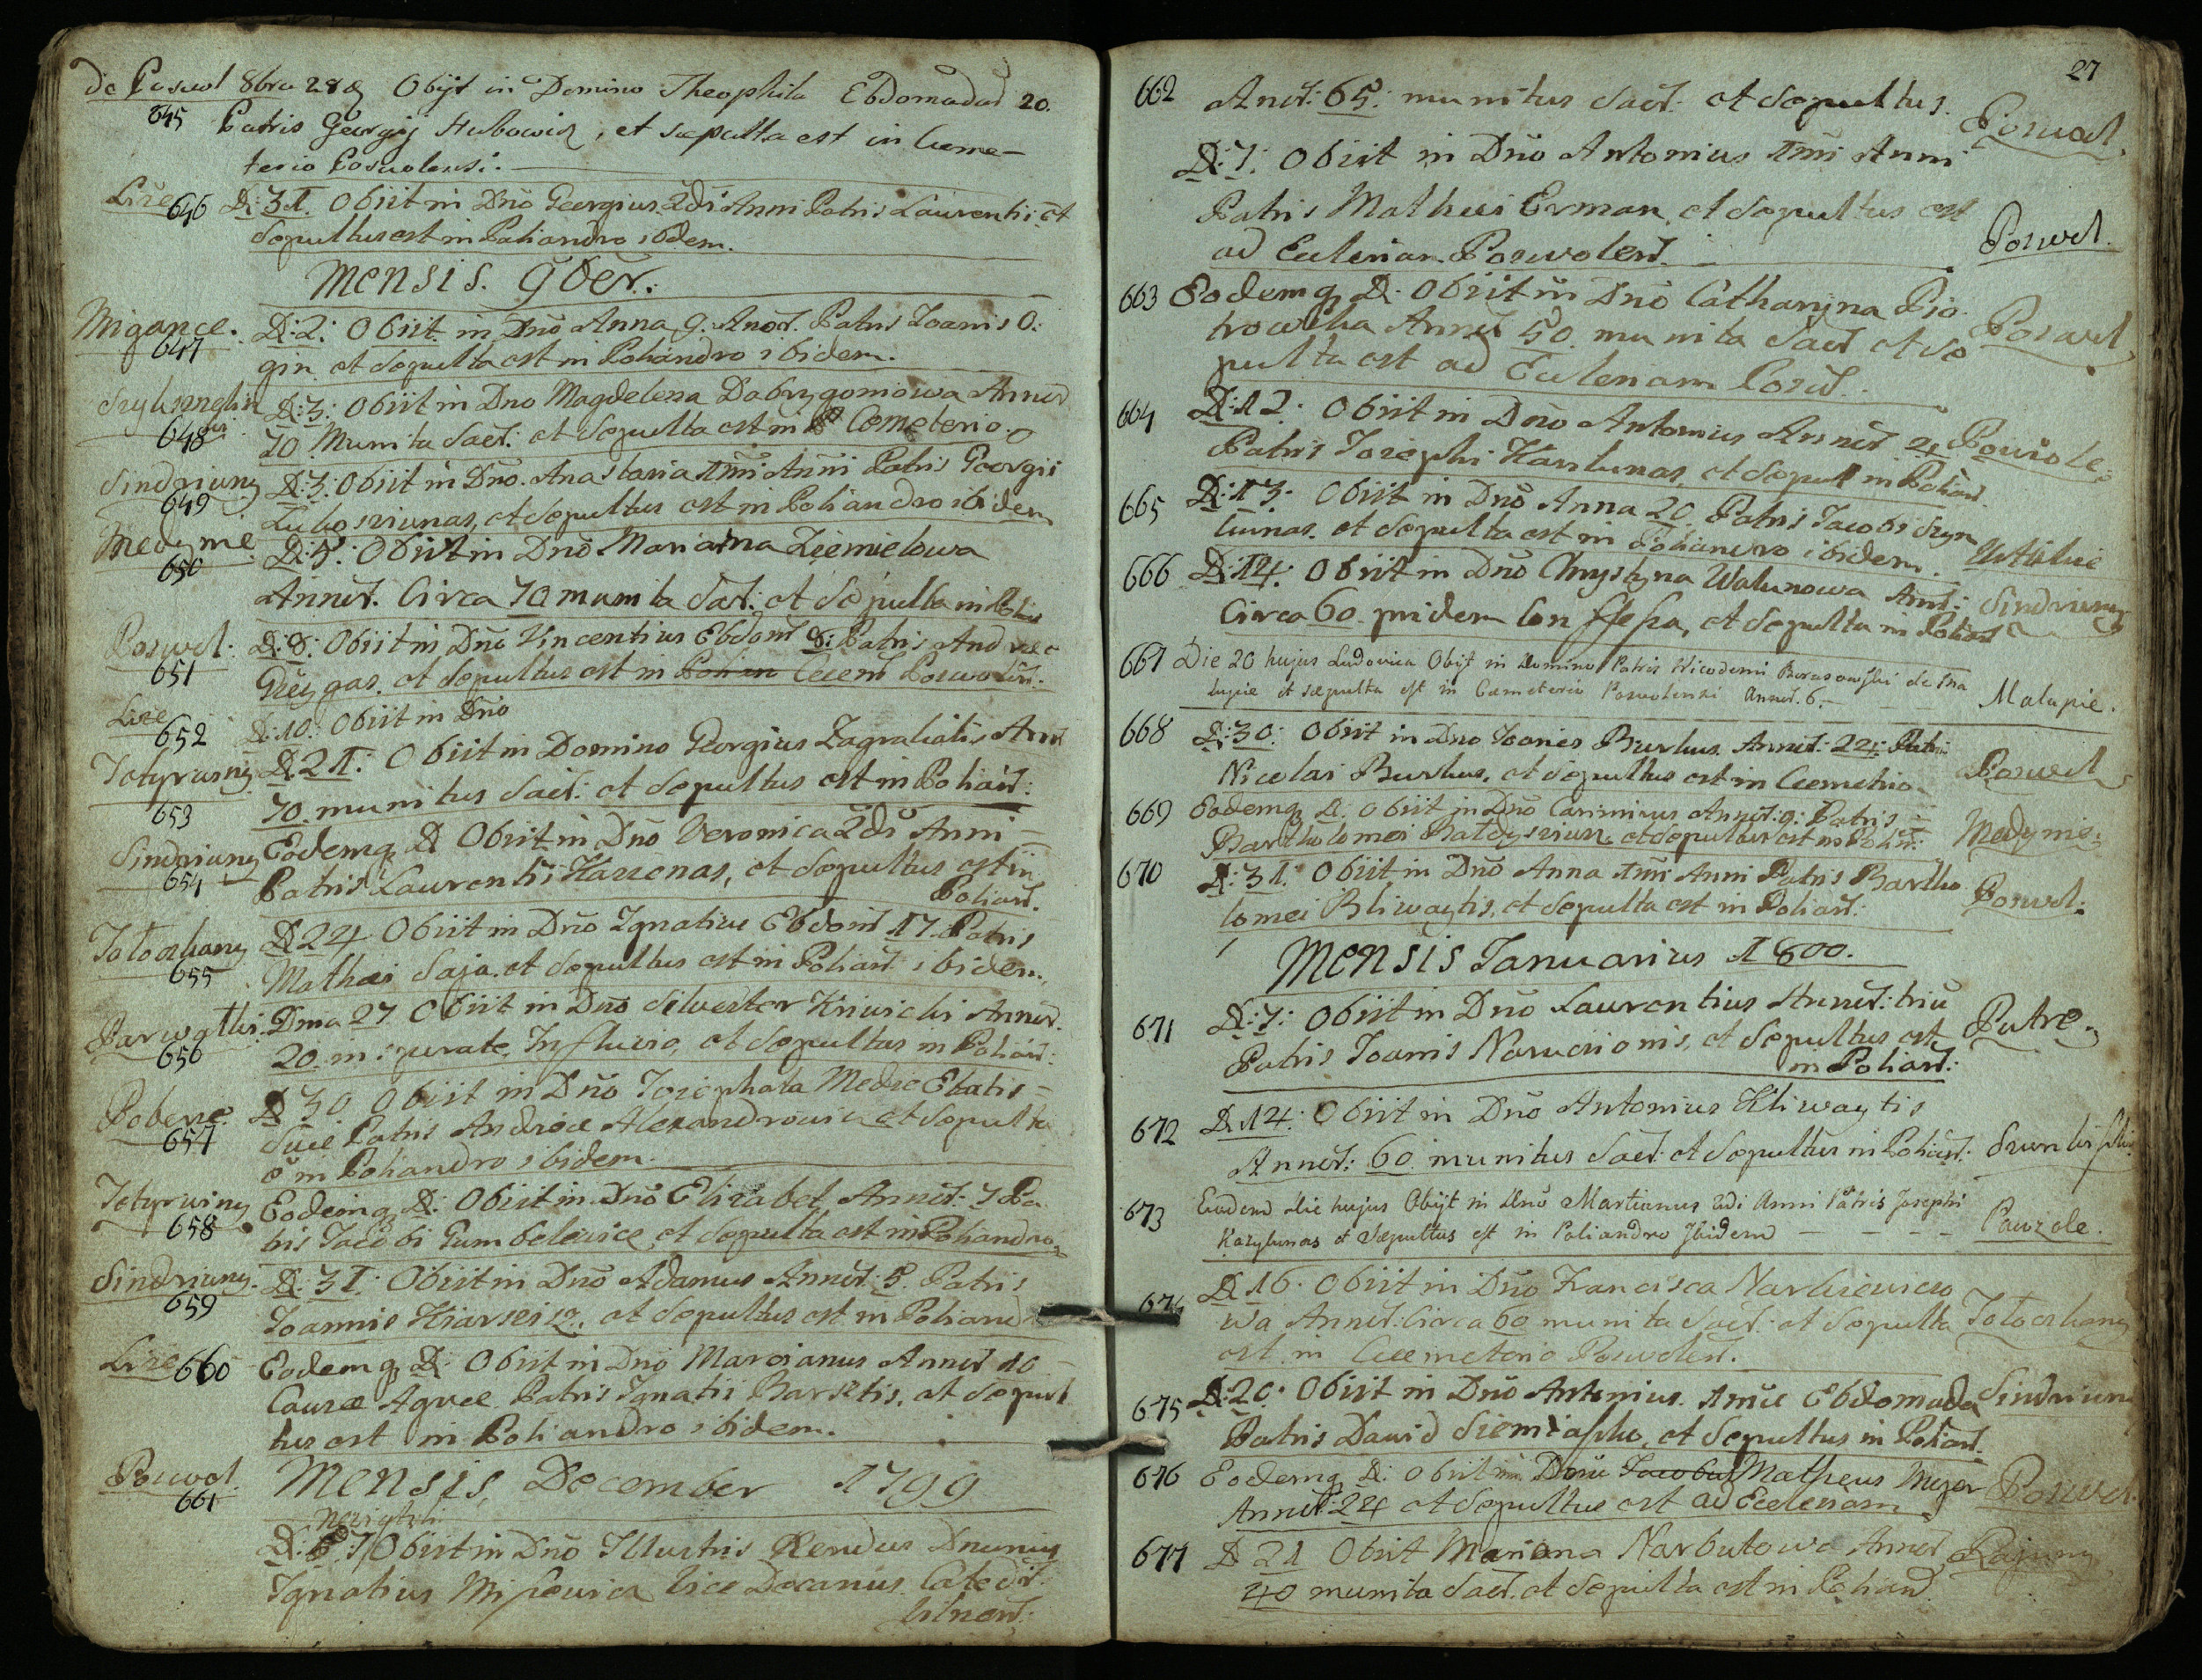 De Poswol 8bra 28 Obijt in Domino Theophila Ebdomadar 20.
645 Patris Georgij Hubowicz, et sepulta est in Ceme-
terio Poswolensi.
Lize 646 D: 31. Obiit in Dno Georgius 2di Anni Patris Laurentii et
Sepultus est in Poliandro ibidem.
Mensis. 9ber.
Migance. 647 D: 2: Obiit in Dno Anna 9. Anor. Patris Joanis O:
gin et Sepulta est in Poliandro ibidem.
648 D: 3: Obiit in Dno Magdelena Dobrzgoniowa Annor
70 Munita Sact: et Sepulta est in Cemeterio.
Sindriuny 649 D: 3: Obiit in Dno Anastazia 1mi Anni Patris Georgii
et Sepultus est in Poliandro ibidem
Medynie 650 D: 5: Obiit in Dno Marianna Ziemielowa
Annor. Circa 70 munita Sact: et Sepulta in
Poswol. 651 D: 8: Obiit in Dno Vincentius Ebdom 8: Patris Andreæ
Greygas. et Sepultus est in Polian Cæem Poswolen.
Lize 652 D: 10: Obiit in Dno
Totyruny 653 D. 21: Obiit in Domino Georgius Zagraliatis Ann
70. munitus Sact: et Sepultus est in Polian:
Sindriuny 654 Eodemq D Obiit in Dno Veronica 2di Anni
Patris Laurentii Karrenas, et Sepultus est in
Polian.
Totorkany 655 D 24 Obiit in Dno Ignatius Ebdom 17. Patris
Mathæi Saja. et Sepultus est in Polian ibidem.
656 Dma 27 Obiit in Dno Silvester Kriwicki Annor.
20. in Fluvio, et Sepultus in Polian:
657 D 30 Obiit in Dno Jozephata Mediæ Etatis
suæ Patris Andreæ Alexandrowicz et Sepulta
e in Poliandro ibidem.
Totyrwiny 658 Eodemq D: Obiit in Dno Elizabet Annor: 7 Pa
tris Jacobi Gumbelewice et Sepulta est in Poliandro
Sindriuny. 659 D: 31: Obiit in Dno Adamus Annor: 5. Patris
Joannis et Sepultus est in Poliand
Lize 660 Eodemq D: Obiit in Dno Marcianus Annor 10
Causa Aquæ Patris Ignatii Barsetis, et Sepul
tus est in Poliandro ibidem.
Poswol 661 Mensis December 1799
D: 7 Obiit in Dno Illustris Rendus Dnunus
Ignatius Misewicz Vice Decanus Catedr:
Vilnen:
27
662 Annor: 65: munitus Sact: et Sepultus. Poswol
D: 7: Obiit in Dno Antonius 1mi Anni
Patris Mathæi Erman, et Sepultus est
ad Eclesiam Poswolen. Poswol.
663 Eodemq D: Obiit in Dno Catharyna Pio
trowska Annor 50. munita Sact et Se Poswol
pulta est ad Eclesiam Posw.
664 D: 12: Obiit in Dno Antonius Annor 4 Powiole
Patris Jozephi Karlunas, et Sepul in Polian
665 D: 13: Obiit in Dno Anna 20 Patris Jacobi Szyn
lunas. et Sepulta est in Poliandro ibidem.
666 D: 14: Obiit in Dno Chrystyna Walunowa Ann: Sindriuny
Circa 60. pridem Confessa, et Sepulta in Polian
667 Die 20 hujus Ludovica Obijt in Domino Patris Nicodemi Borusowski de Ma
lupie et sepulta est in Cæmeterio Poswolensi Annor. 6. Malupie.
668 D: 30: Obiit in Dno Joanes Burkus Annor: 22: Patris
Nicolai Burkus, et Sepultus est in Cemetrio Poswol
669 Eodemq D: Obiit in Dno Carimirus Annor: 9: Patris
Bartholomei et Sepultus est in Polian: Medynie
670 D: 31: Obiit in Dno Anna 1mi Anni Patris Bartho
lomei Bliwaytis, et Sepulta est in Polian: Poswol:
Mensis Januarius 1800.
671 D: 7: Obiit in Dno Laurentius Annor: triu Putre
Patris Joanis Narucrionis, et Sepultus est
in Polian:
672 D. 14: Obiit in Dno Antonius Kliwaytis
Annor: 60. munitus Sact: et Sepultus in Polian:
673 Eadem die hujus Obijt in Dno Martianus 2di Anni Patris Josephi
Kazylunas et Sæpultus est in Poliandro Ibidem Pawzole.
674 D 16. Obiit in Dno Francisca Narkiewiczo
wa Annor: Circa 60 munita Sact: et Sepulta Totorkany
est in Cæemeterio Poswolen.
675 D: 20: Obiit in Dno Antonius 1mæ Ebdomada Sindriuny
Patris Dawid Siemiasko, et Sepultus in Polian.
676 Eodemq D: Obiit in Dno Jacobus Matheus Mejer Poswol.
Annor: 24 et Sepultus est ad Eclesiam
677 D 21 Obiit Mariana Narbutowa Annor Rajuny
40 munita Sact. et Sepulta est in Polian